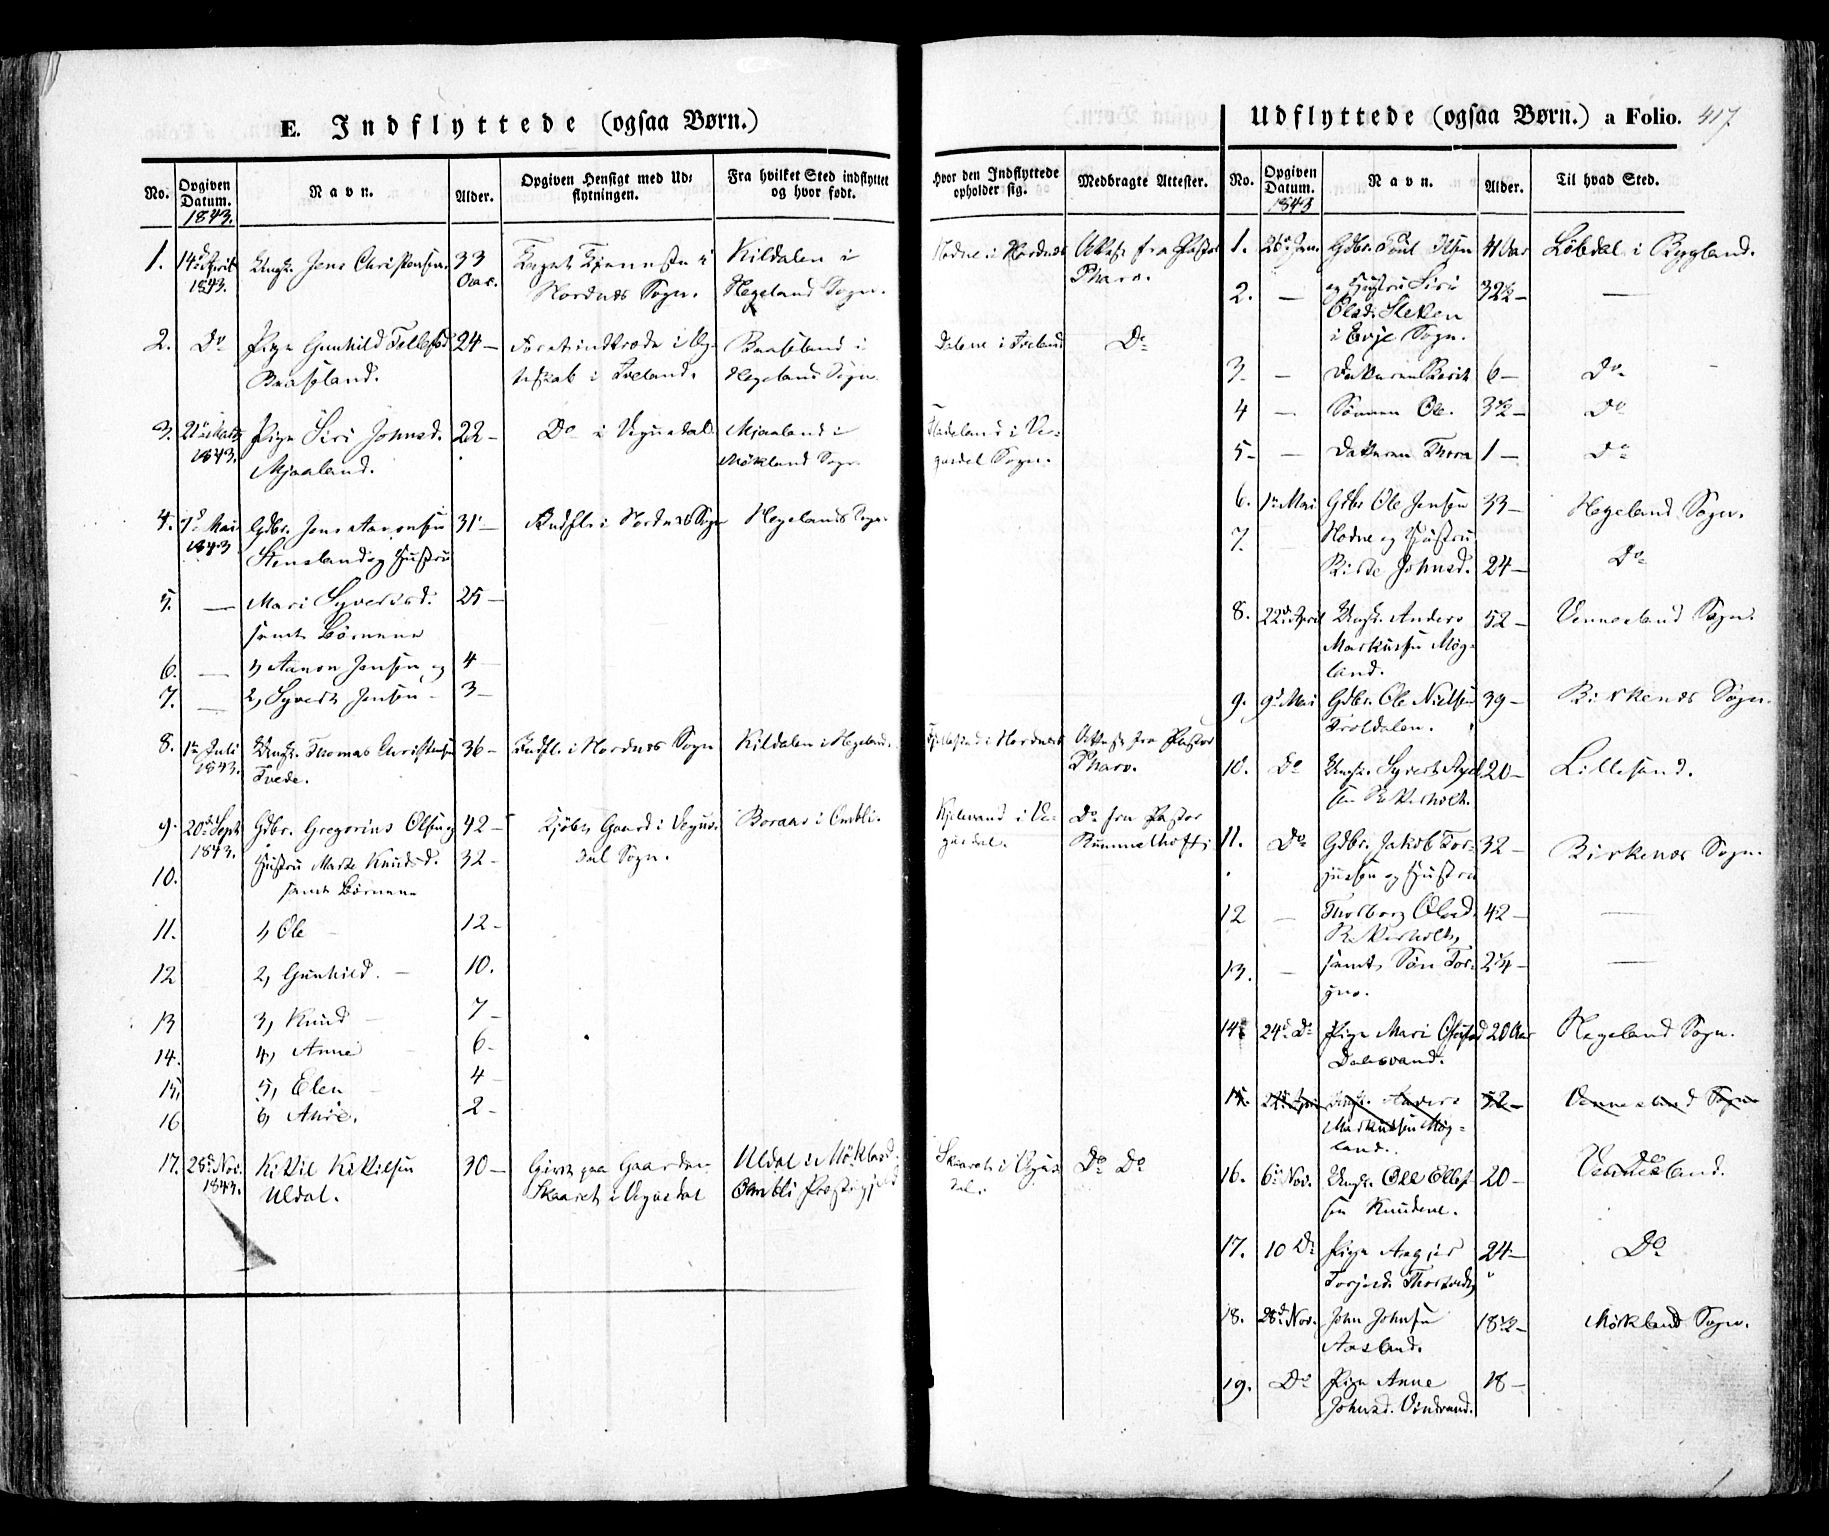 E. Indflyttede (ogsaa Børn.)
No. Opgiven Datum. 1843. Navn. Alder. Opgiven Hensigt med Udflytningen. Fra hvilket Sted indflyttet og hvor født. Hvor den Indflyttede opholder sig. Medbragte Attester.
1. 14d April 1843. Ungk. Jens Christensen 33 Aar. Hordnes Sogn. Kildalen i Hegeland Sogn. Hodne i Hordnes Attest fra Pastor Pharo.
2. Do Pige Gunhild Tellefsd. Baasland. 24 – i Iveland. Baasland i Hegeland Sogn. Dalene i Iveland Do
3. 21de Marts 1843. Pige Siri Johnsd. Mjaaland. 22 – Do i Vegusdal Mjaaland i Mökland Sogn. i Vegusdal Sogn.
4. 7d Mai 1843 Gdbr. Jens Aanonsen Stensland og Hustru 31 – Indfl. i Hordnes Sogn Hegelands Sogn.
5. — Mari Syversd. samt Børnene 25 –
6. — 1, Aanon Jensen og 4
7. — 2, Syvert Jensen – 3 –
8. 1ste Juli 1843. Ungk. Thomas Christensen Tvede. 36 – Indfl. i Hordnes Sogn Kildalen i Hegeland. i Hordnes Attest fra Pastor Pharo.
9. 20de Sept. 1843. Gdbr. Gregorius Olsen og 42 – Kjøbt Gaard i Vegusdal Sogn. Boraas i Omli. i Vegusdal. Do fra Pastor Rummelhoff
10. Hustru Marte Knudsd. samt Børnene 32 –
11. 1, Ole 12 –
12 2, Gunhild. – 10.
13 3, Knud 7 –
14. 4, Anne 6 –
15. 5, Elen 4 –
16 6, Anne. 2 –
17. 28de Nov. 1843. Kittil Kittilsen Uldal. 30 – Givt paa Gaarden Skaaret i Vegusdal Uldal i Mökland Omli Præstegjeld Skaaret i Vegusdal. Do Do
Udflyttede (ogsaa Børn.) a Folio. 417.
No. Opgiven Datum. 1843 Navn. Alder. Til hvad Sted.
1. 26de Jan. Gdbr. Poul Olsen 41 Aar Løbdal i Bygland.
2. — og Hustru Siri Olsd. Sletten i Evje Sogn. 32½ – —
3. — Datteren Berit 6 – Do
4 — Sønnen Ole. 3½ – Do
5 – — Datteren Thora 1 – Do
6. 1ste Mai Gdbr. Ole Jensen 33 – Hegeland Sogn.
7. — Hodne og Hustru Birte Johnsd. 24 – Do
8. 22de April Ungk. Anders Markussen Mögland. 52 – Vennesland Sogn.
9. 9d Mai Gdbr. Ole Nielsen Troldalen. 39 – Birkenes Sogn.
10. Do Ungk. Syvert Retterholt. 20 – Lillesand.
11. Do Gdbr. Jakob Torjussen og Hustru 32 – Birkenes Sogn.
12 — Thorborg Olsd. Retterholt, 42 – —
13. — samt Søn Torjus. 2¼ – —
14. 24d Do Pige Mari Dalsvand. 20 Aar Hegeland Sogn.
15. 22de April Ungk. Anders Markussen Mögland. 52 – Vennesland Sogn
16. 6te Nov. Ungk. Ole Ellefsen Knudene. 20 – Vennesland.
17. 10 Do Pige Aagjer Torjusd. 24 – Do
18. 28d Nov. John Johnsen Aasland. 18½ – Mökland Sogn.
19. Do Pige Anne Johnsd. Vindvand. 18 –